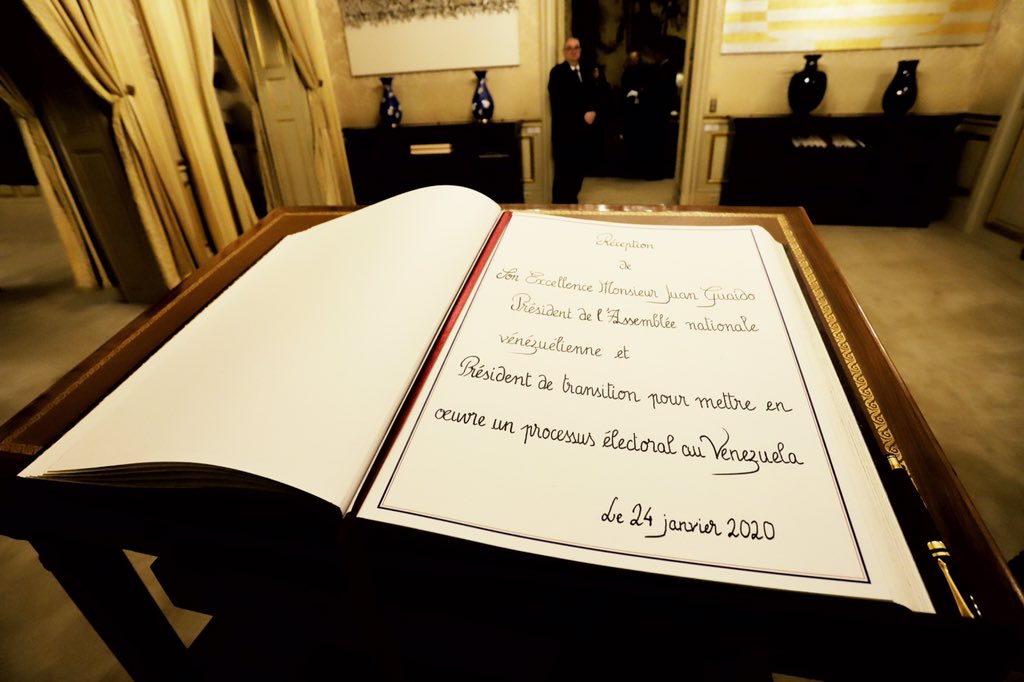 Réception
de
Son Excellence Monsieur Juan Guaido
Président de l'Assemblée nationale
vénézuélienne et
Président de transition pour mettre en
œuvre un processus électoral au Venezuela
Le 24 janvier 2020